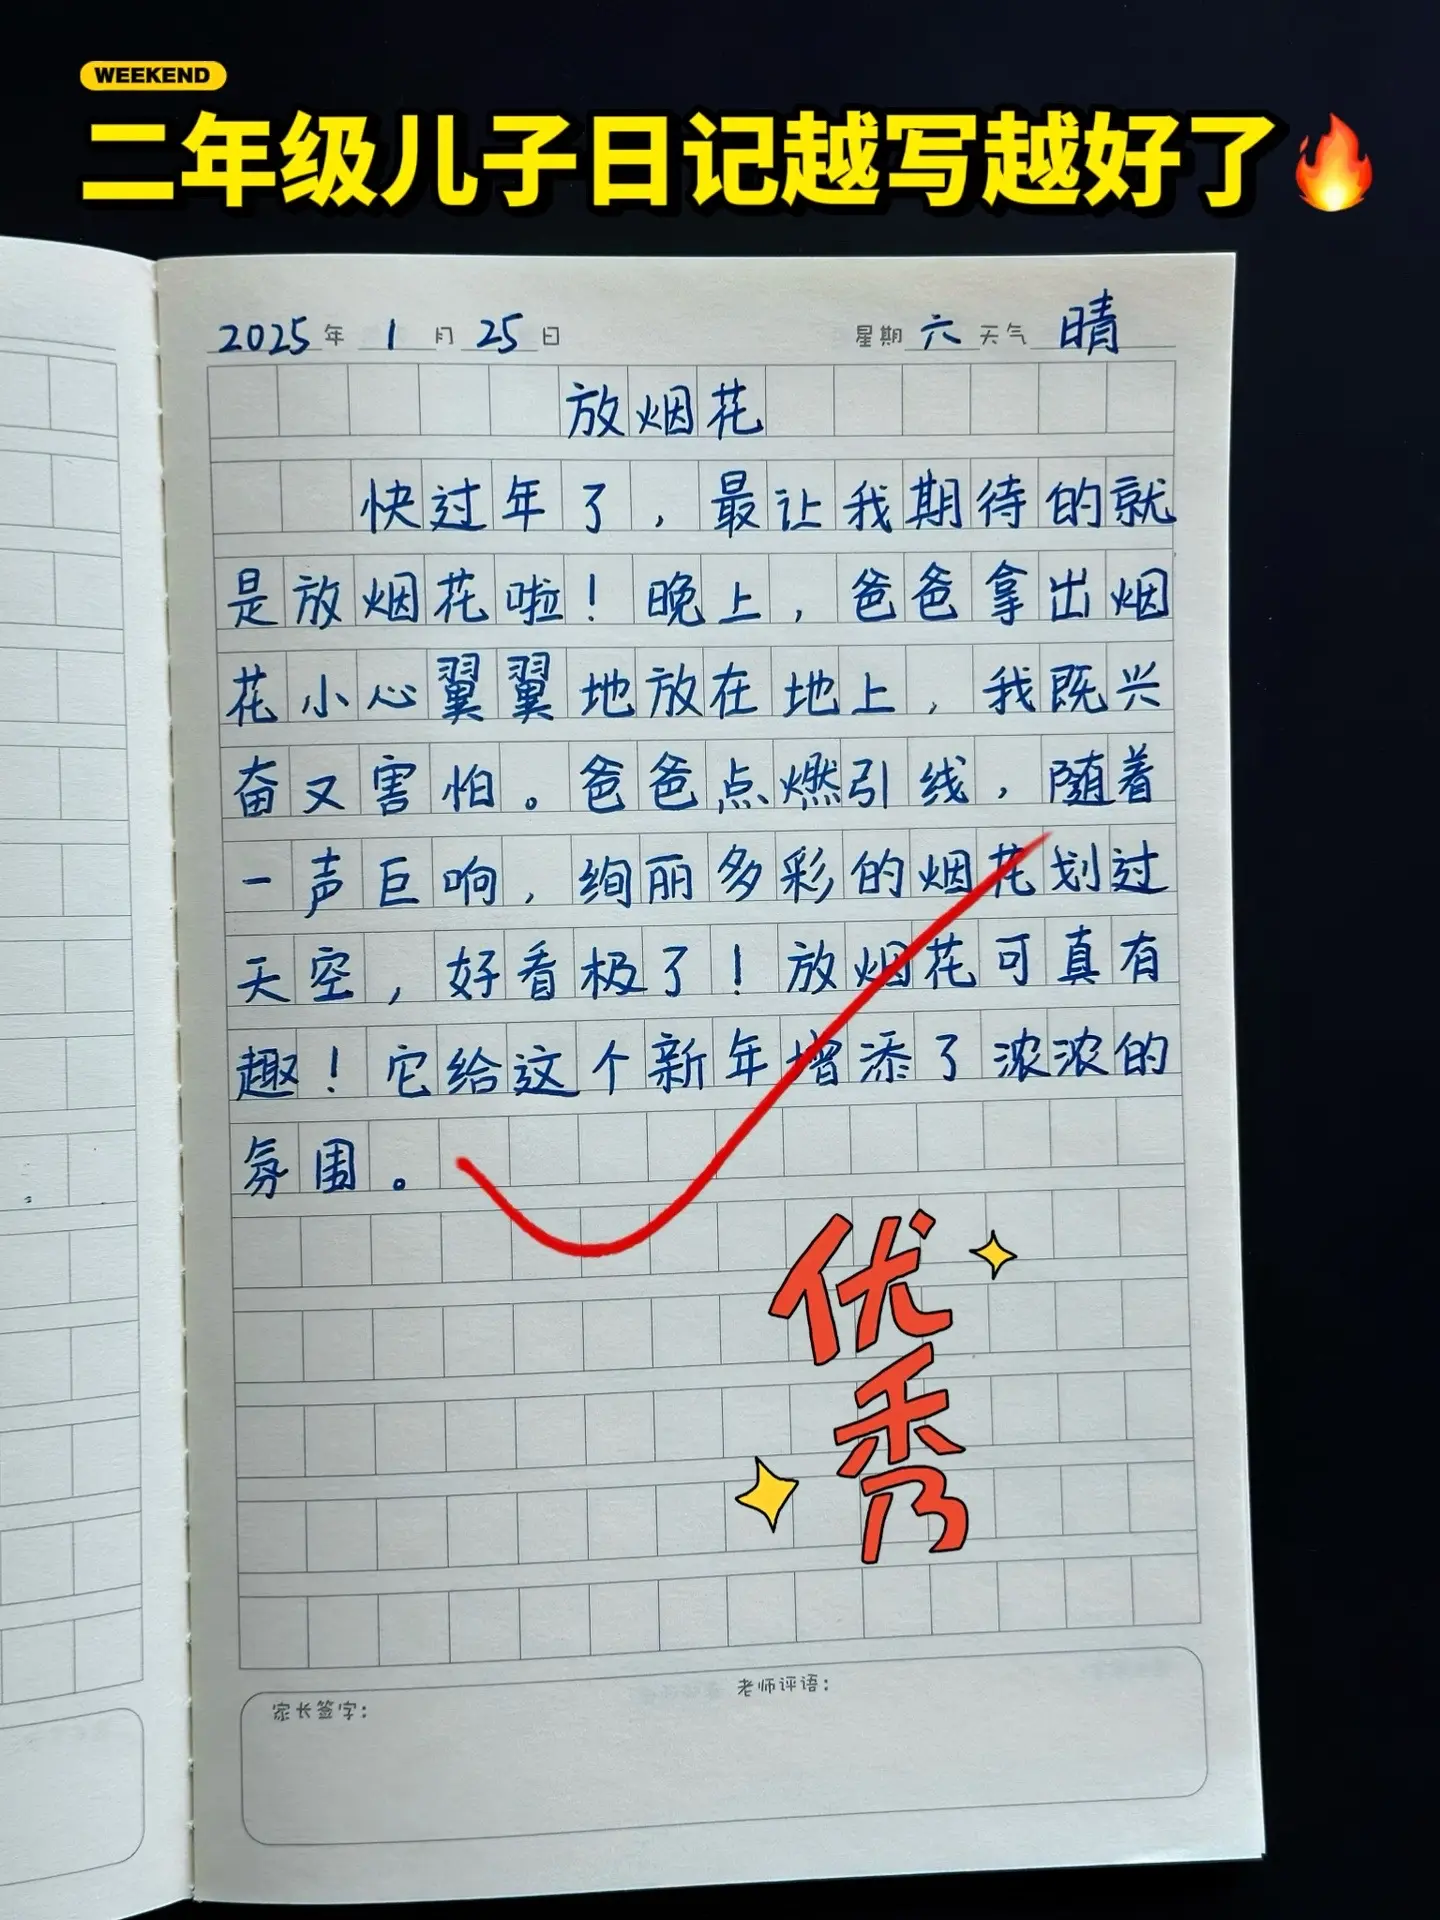 WEEKEND
二年级儿子日记越写越好了
2025年 1月25日 星期六 天气 晴
放烟花
快过年了，最让我期待的就
是放烟花啦！晚上，爸爸拿出烟
花小心翼翼地放在地上，我既兴
奋又害怕。爸爸点燃引线，随着
一声巨响，绚丽多彩的烟花划过
天空，好看极了！放烟花可真有
趣！它给这个新年增添了浓浓的
氛围。
优
秀
家长签字：
老师评语：